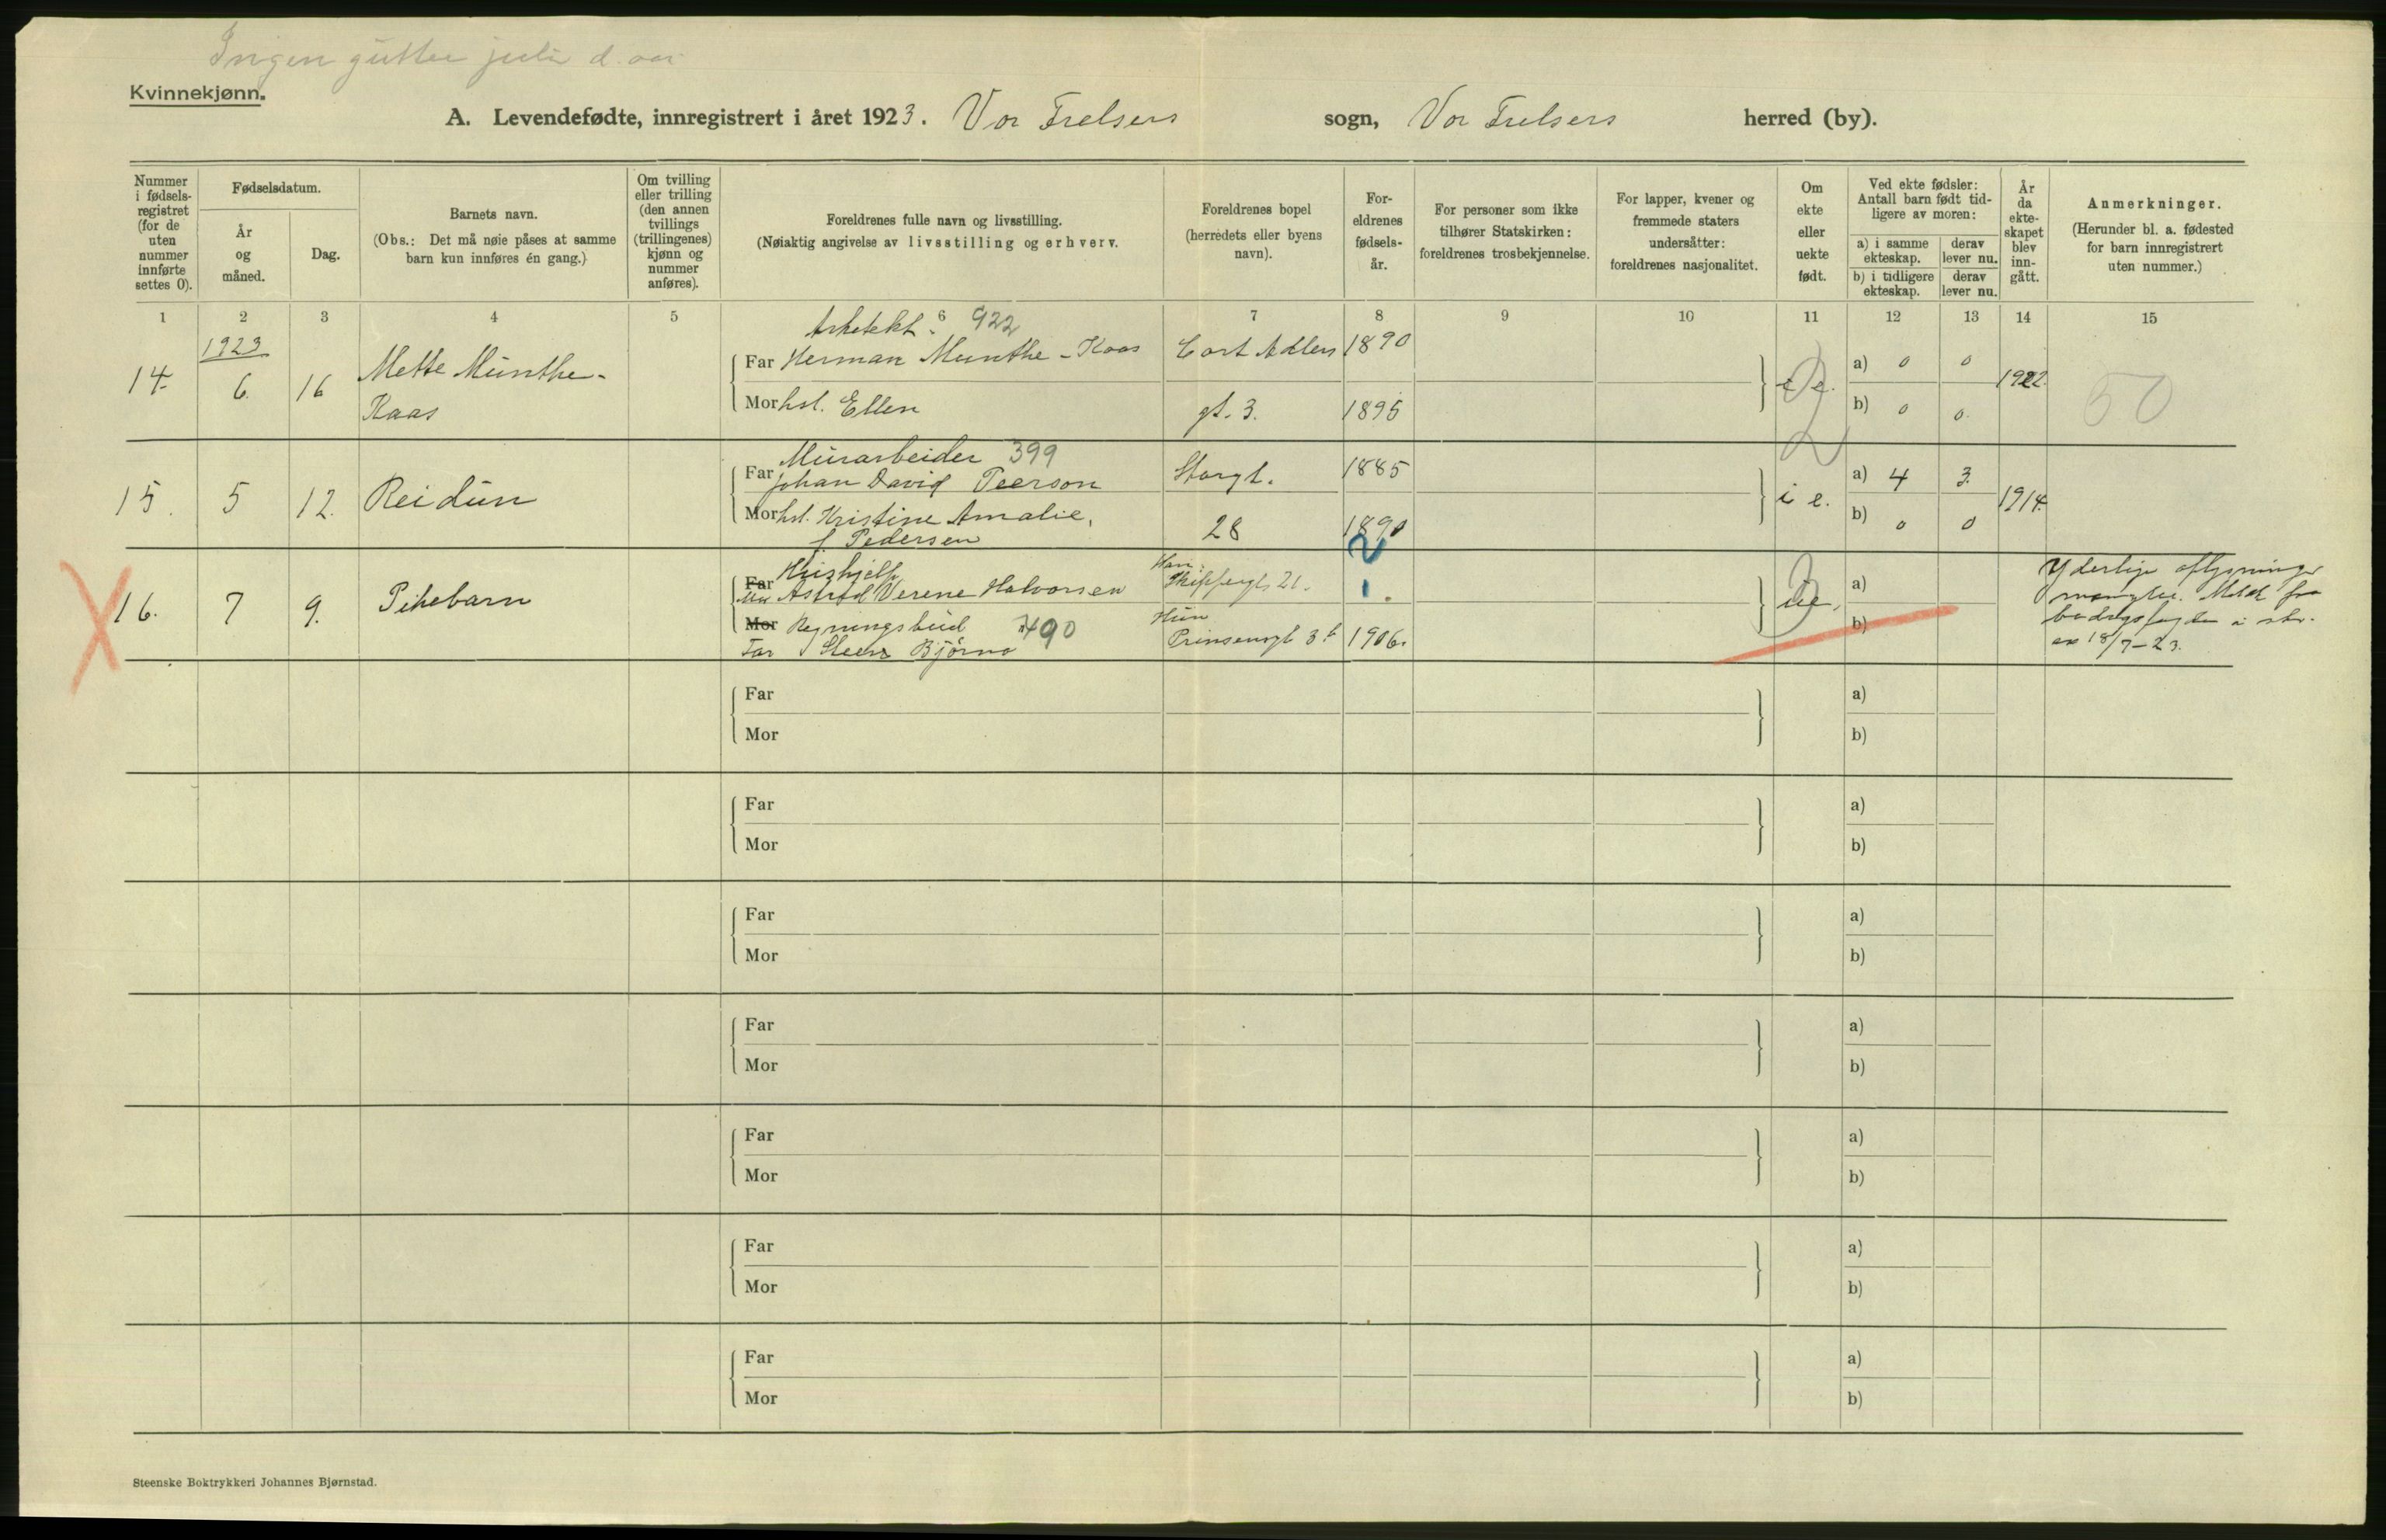 Ingen gutter juli d. aar
Kvinnekjønn.
A. Levendefødte, innregistrert i året 1923. Vor Frelsers sogn, Vor Frelsers herred (by).
Nummer i fødsels-registret (for de uten nummer innførte settes 0).
Fødselsdatum.
År og måned.
Dag.
Barnets navn.
(Obs.: Det må nøie påses at samme barn kun innføres én gang.)
Om tvilling eller trilling (den annen tvillings (trillingenes) kjønn og nummer anføres).
Foreldrenes fulle navn og livsstilling.
(Nøiaktig angivelse av livsstilling og erhverv.
Foreldrenes bopel (herredets eller byens navn).
For-eldrenes fødsels-år.
For personer som ikke tilhører Statskirken: foreldrenes trosbekjennelse.
For lapper, kvener og fremmede staters undersåtter: foreldrenes nasjonalitet.
Om ekte eller uekte født.
Ved ekte fødsler: Antall barn født tid-ligere av moren:
a) i samme ekteskap.
derav lever nu.
b) i tidligere ekteskap.
derav lever nu.
År da ekte-skapet blev inn-gått.
Anmerkninger.
(Herunder bl. a. fødested for barn innregistrert uten nummer.)
1 2 3 4 5 6 7 8 9 10 11 12 13 14 15
1923
Arkitekt. 922
14. 6. 16 Mette Munthe-Kaas
Far Herman Munthe-Kaas Cort Adlers 1890 a) 0 0
e e. 1922. 50
Mor hst. Ellen gt. 3. 1895 b) 0 0.
2
Murarbeider 399
15. 5 12. Reidun
Far Johan David Peerson Storgt. 1885 a) 4 3.
i e. 1914.
Mor hst. Kristine Amalie, 28 1890 b) 0 0
f. Pedersen
2
Hushjelp
16. 7 9. Pikebarn
Far Mor Astrid Verene Halvorsen Han: Skippergt. 21. 1. a)
ue.
Mor Regningsbud 490 Hun b)
Far Steen Bjørno Prinsensgt 3b 1906.
Yderlige oplysninger
mangler. Meldt fra
bidragsfogden i skr.
av 18/7-23.
X
Far a)
Mor b)
Far a)
Mor b)
Far a)
Mor b)
Far a)
Mor b)
Far a)
Mor b)
Far a)
Mor b)
Far a)
Mor b)
Steenske Boktrykkeri Johannes Bjørnstad.